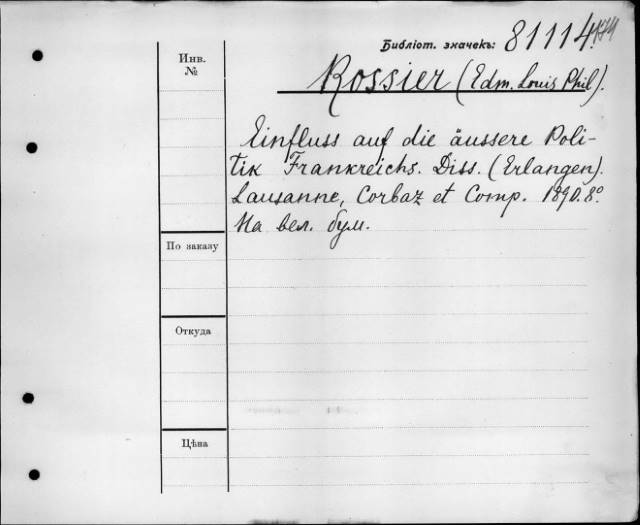 Библіот. значекъ: 81114
Инв.
№
Rossier (Edm. Louis Phil).
Einfluss auf die äussere Poli-
tik Frankreichs. Diss. (Erlangen).
Lausanne, Corbaz et Comp. 1890. 8º.
На вел. бум.
По заказу
Откуда
Цѣна